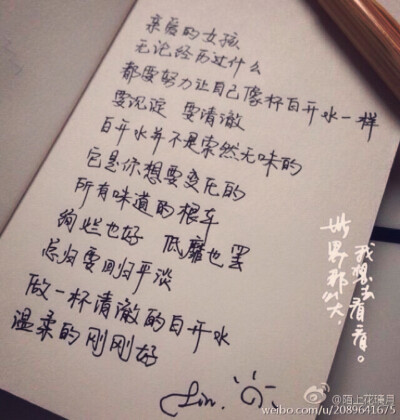 亲爱的女孩
无论经历过什么
都要努力让自己像杯白开水一样
要沉淀 要清澈
白开水并不是索然无味的
它是你想要变化的
所有味道的根本
绚烂也好 低靡也罢
总归要回归平淡
做一杯清澈的白开水
温柔的刚刚好
Lin.
世界那么大,
我想去看看。
@陌上花瑧月
weibo.com/u/2089641675